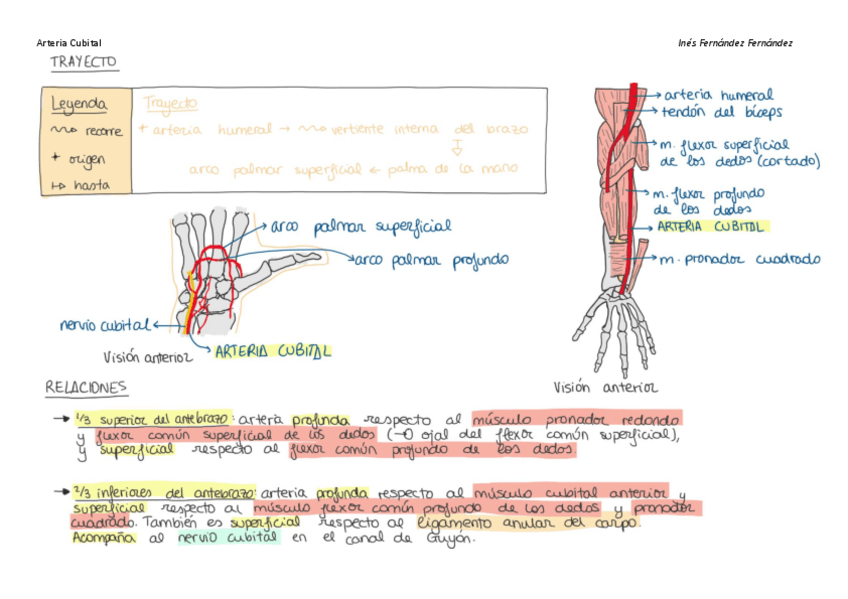 Arteria Cubital
Inés Fernández Fernández
TRAYECTO
Leyenda
recorre
+ origen
↦ hasta
Trayecto
+ arteria humeral → vertiente interna del brazo
arco palmar superficial ← palma de la mano
arteria humeral
tendón del bíceps
m. flexor superficial
de los dedos (cortado)
m. flexor profundo
de los dedos
ARTERIA CUBITAL
m. pronador cuadrado
Visión anterior
arco palmar superficial
arco palmar profundo
nervio cubital
ARTERIA CUBITAL
Visión anterior
RELACIONES
→ 1/3 superior del antebrazo: arteria profunda respecto al músculo pronador redondo
y flexor común superficial de los dedos (→O ojal del flexor común superficial),
y superficial respecto al flexor común profundo de los dedos.
→ 2/3 inferiores del antebrazo: arteria profunda respecto al músculo cubital anterior y
superficial respecto al músculo flexor común profundo de los dedos y pronador
cuadrado. También es superficial respecto al ligamento anular del carpo.
Acompaña al nervio cubital en el canal de Guyón.